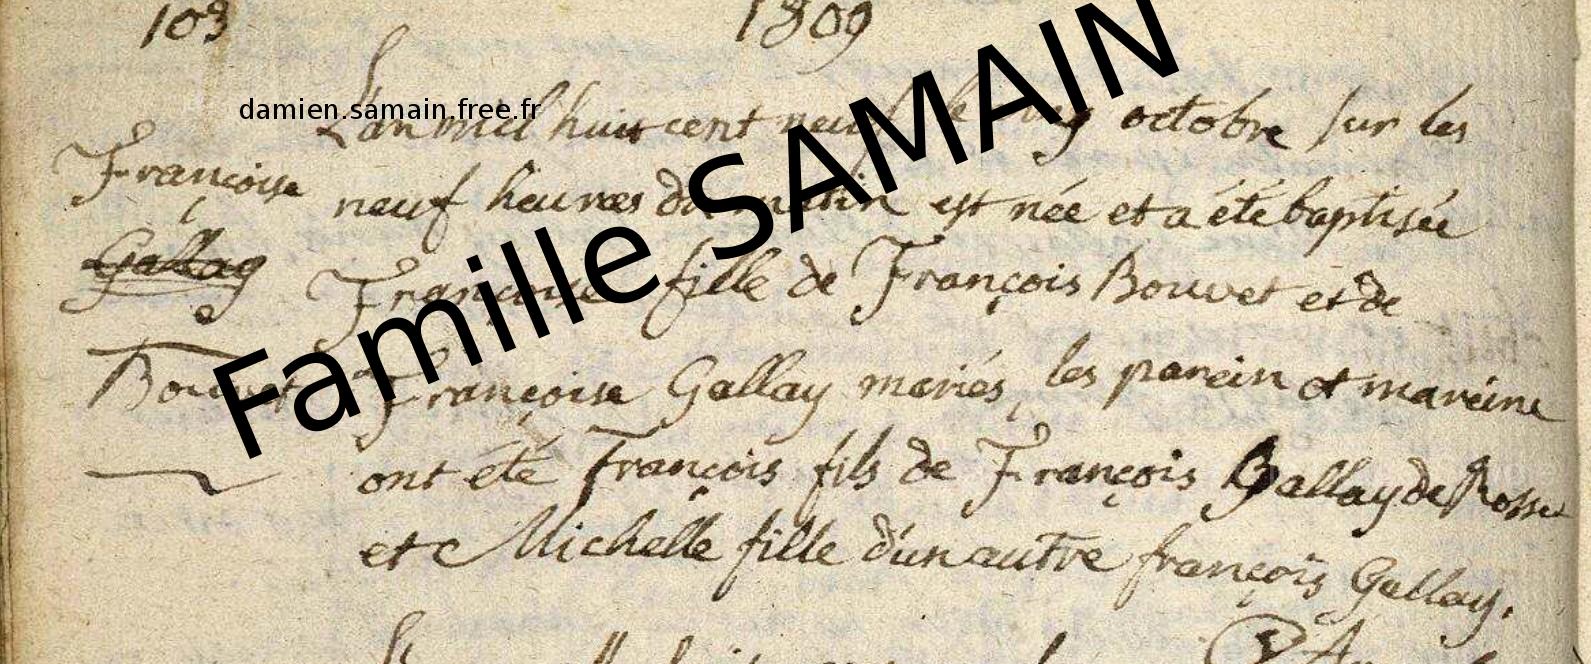 103 1809
damien.samain.free.fr
L'an mil huit cent neuf le cinq octobre sur les
Françoise
neuf heures du matin est née et a été baptisée
Gallay
Françoise fille de François Bouvet et de
Bouvet
Françoise Gallay mariés, les parein et mareine
ont été François fils de François Gallay de Rosset
et Michelle fille d'un autre françois Gallay.
Famille SAMAIN